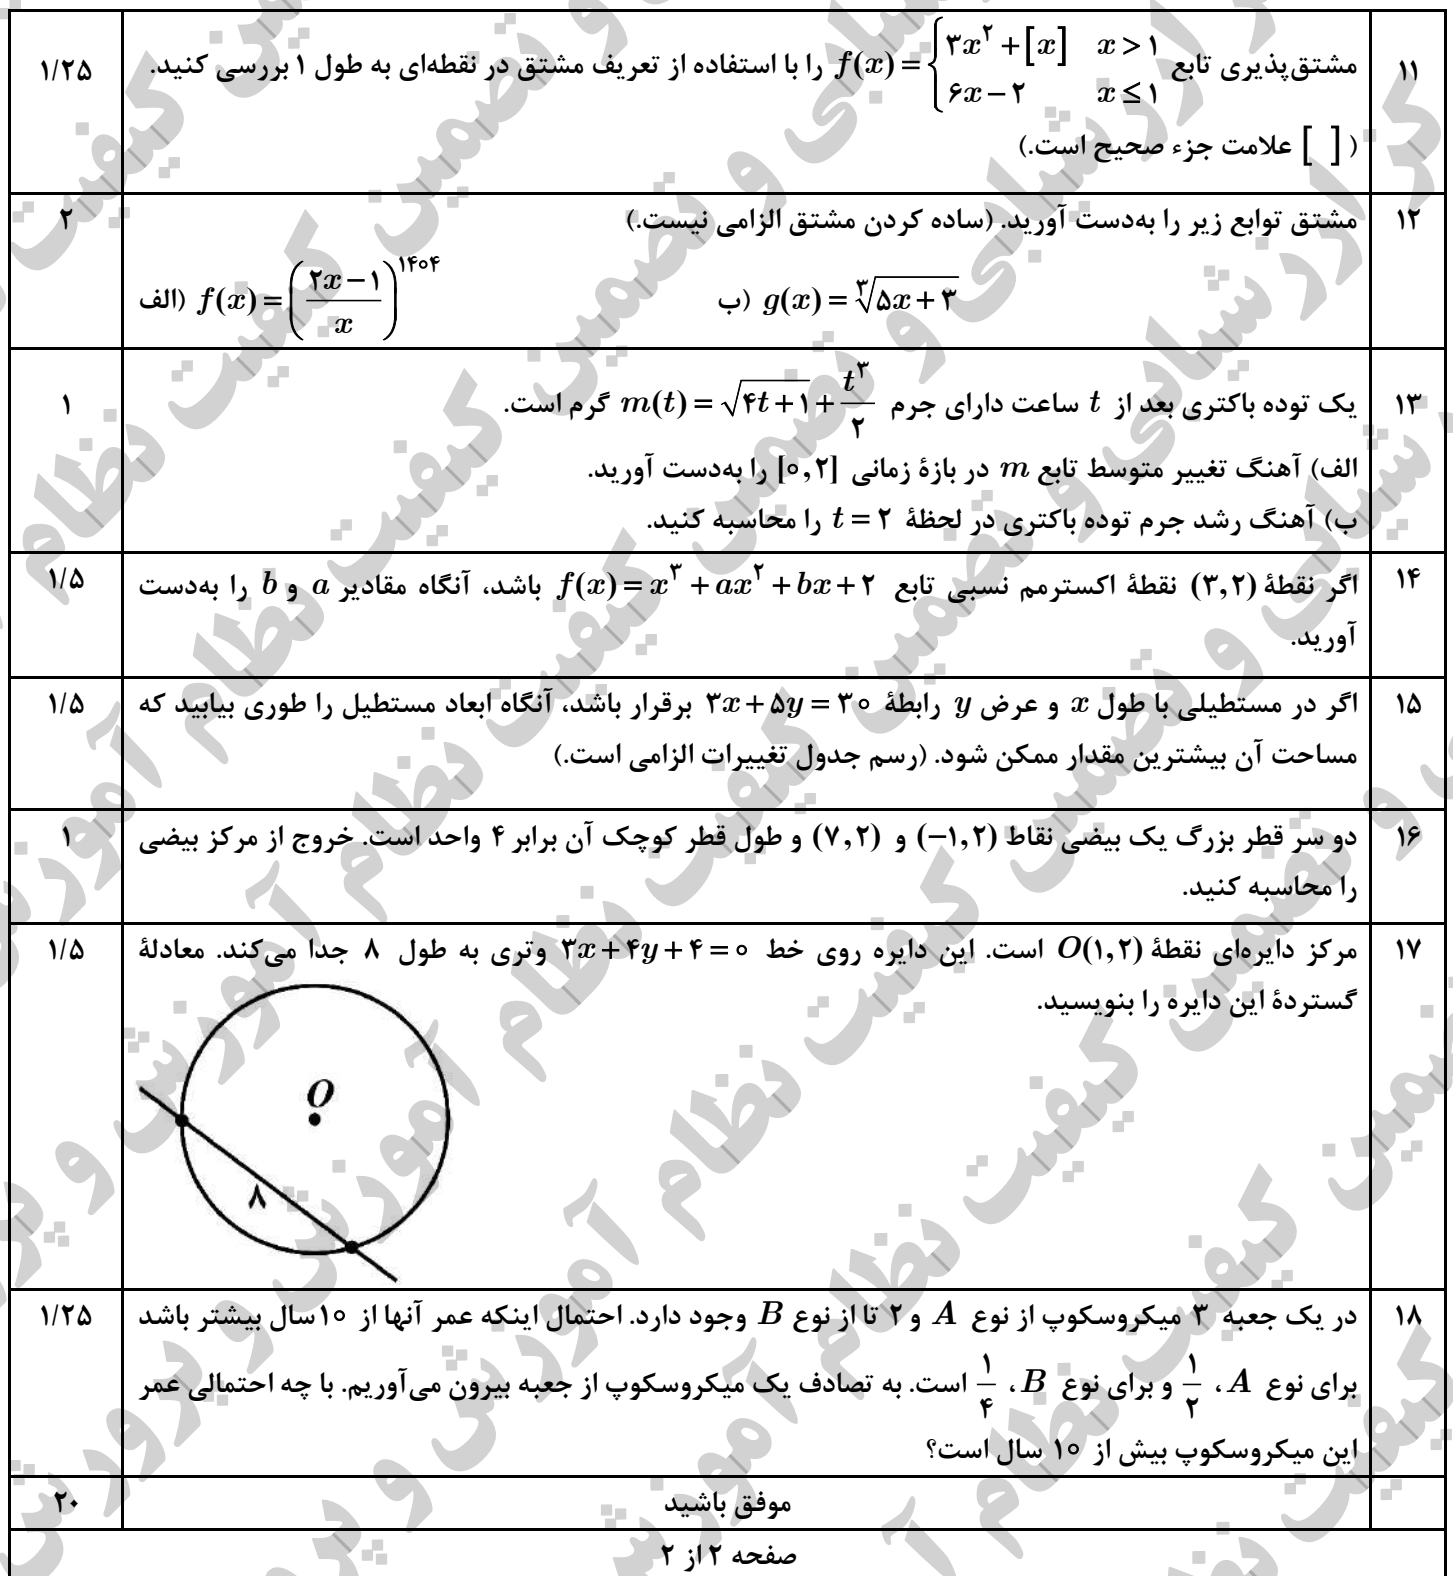 ۱۱ مشتق‌پذیری تابع f(x) = { ۳x² + [x]  x > ۱ ; ۶x − ۲  x ≤ ۱ را با استفاده از تعریف مشتق در نقطه‌ای به طول ۱ بررسی کنید. ۱/۲۵
( [ ] علامت جزء صحیح است.)
۱۲ مشتق توابع زیر را به‌دست آورید. (ساده کردن مشتق الزامی نیست.) ۲
الف) f(x) = ((۲x − ۱)/x)^۱۴۰۴ ب) g(x) = ∛(۵x + ۳)
۱۳ یک توده باکتری بعد از t ساعت دارای جرم m(t) = √(۴t + ۱) + t³/۲ گرم است. ۱
الف) آهنگ تغییر متوسط تابع m در بازهٔ زمانی [۰,۲] را به‌دست آورید.
ب) آهنگ رشد جرم توده باکتری در لحظهٔ t = ۲ را محاسبه کنید.
۱۴ اگر نقطهٔ (۳,۲) نقطهٔ اکسترمم نسبی تابع f(x) = x³ + ax² + bx + ۲ باشد، آنگاه مقادیر a و b را به‌دست ۱/۵
آورید.
۱۵ اگر در مستطیلی با طول x و عرض y رابطهٔ ۳x + ۵y = ۳۰ برقرار باشد، آنگاه ابعاد مستطیل را طوری بیابید که ۱/۵
مساحت آن بیشترین مقدار ممکن شود. (رسم جدول تغییرات الزامی است.)
۱۶ دو سر قطر بزرگ یک بیضی نقاط (−۱,۲) و (۷,۲) و طول قطر کوچک آن برابر ۴ واحد است. خروج از مرکز بیضی ۱
را محاسبه کنید.
۱۷ مرکز دایره‌ای نقطهٔ O(۱,۲) است. این دایره روی خط ۳x + ۴y + ۴ = ۰ وتری به طول ۸ جدا می‌کند. معادلهٔ ۱/۵
گستردهٔ این دایره را بنویسید.
O
۸
۱۸ در یک جعبه ۳ میکروسکوپ از نوع A و ۲ تا از نوع B وجود دارد. احتمال اینکه عمر آنها از ۱۰سال بیشتر باشد ۱/۲۵
برای نوع A، ۱/۲ و برای نوع B، ۱/۴ است. به تصادف یک میکروسکوپ از جعبه بیرون می‌آوریم. با چه احتمالی عمر
این میکروسکوپ بیش از ۱۰ سال است؟
موفق باشید ۲۰
صفحه ۲ از ۲
مرکز ارزشیابی و تضمین کیفیت نظام آموزش و پرورش